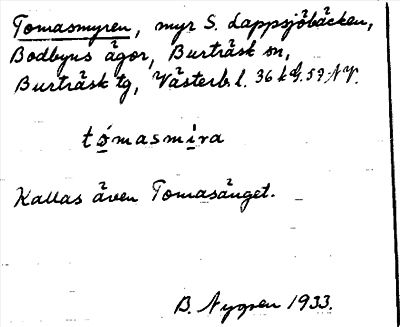 Tomasmyren, myr S. Lappsjöbäcken,
Bodbyns ägor, Burträsk sn,
Burträsk tg, Västerb. l. 36 k G. 59 NV.
tómasmira
Kallas även Tomasänget.
B. Nygren 1933.